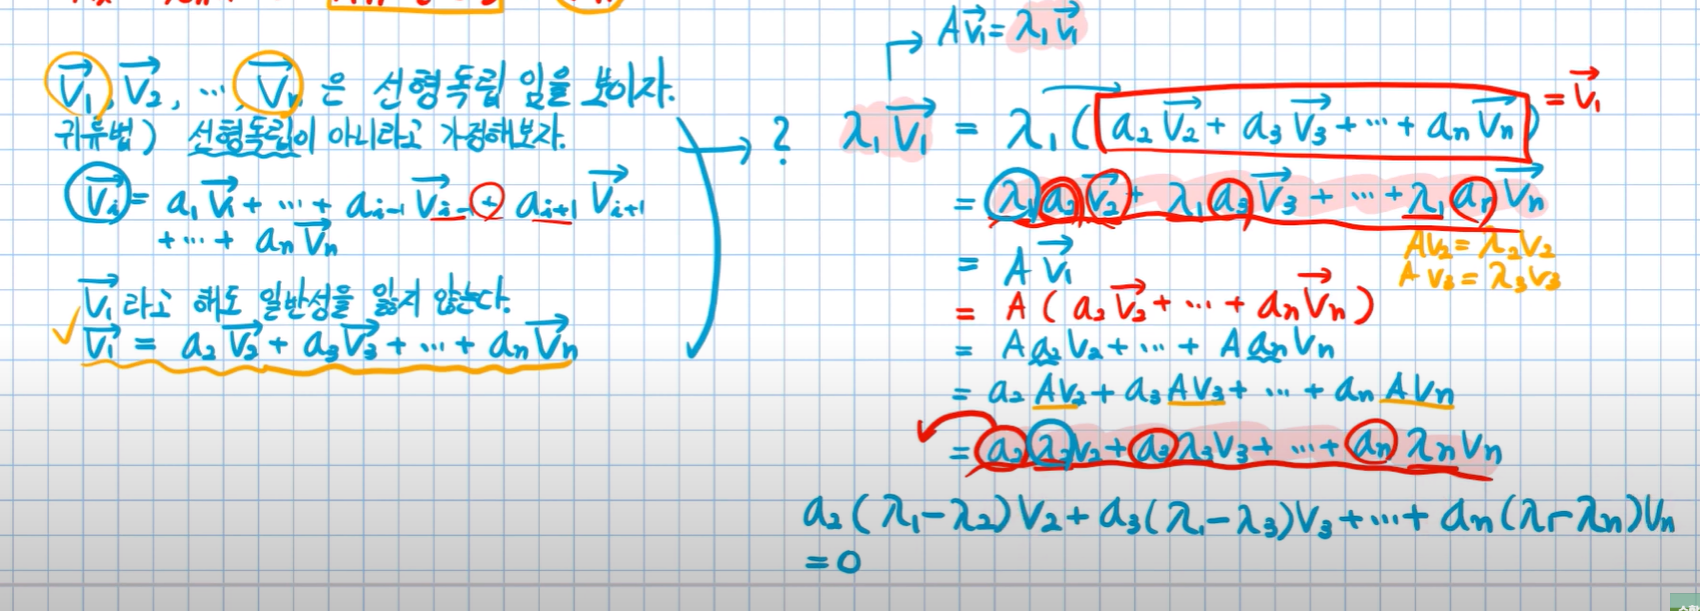 v⃗₁, v⃗₂, ⋯, v⃗ₙ 은 선형독립 임을 보이자.
귀류법) 선형독립이 아니라고 가정해보자.
v⃗ᵢ = a₁v⃗₁ + ⋯ + aᵢ₋₁ v⃗ᵢ₋₁ + aᵢ₊₁ v⃗ᵢ₊₁
+ ⋯ + aₙv⃗ₙ
v⃗₁ 라고 해도 일반성을 잃지 않는다.
✓ v⃗₁ = a₂v⃗₂ + a₃v⃗₃ + ⋯ + aₙv⃗ₙ
→ ?
→ Av⃗₁ = λ₁v⃗₁
λ₁v⃗₁ = λ₁(a₂v⃗₂ + a₃v⃗₃ + ⋯ + aₙv⃗ₙ) = v⃗₁
= λ₁a₂v⃗₂ + λ₁a₃v⃗₃ + ⋯ + λ₁aₙv⃗ₙ
Av₂ = λ₂v₂
Av₃ = λ₃v₃
= Av⃗₁
= A(a₂v⃗₂ + ⋯ + aₙv⃗ₙ)
= Aa₂v₂ + ⋯ + Aaₙvₙ
= a₂Av₂ + a₃Av₃ + ⋯ + aₙAvₙ
= a₂λ₂v₂ + a₃λ₃v₃ + ⋯ + aₙλₙvₙ
a₂(λ₁-λ₂)v₂ + a₃(λ₁-λ₃)v₃ + ⋯ + aₙ(λ₁-λₙ)vₙ
= 0